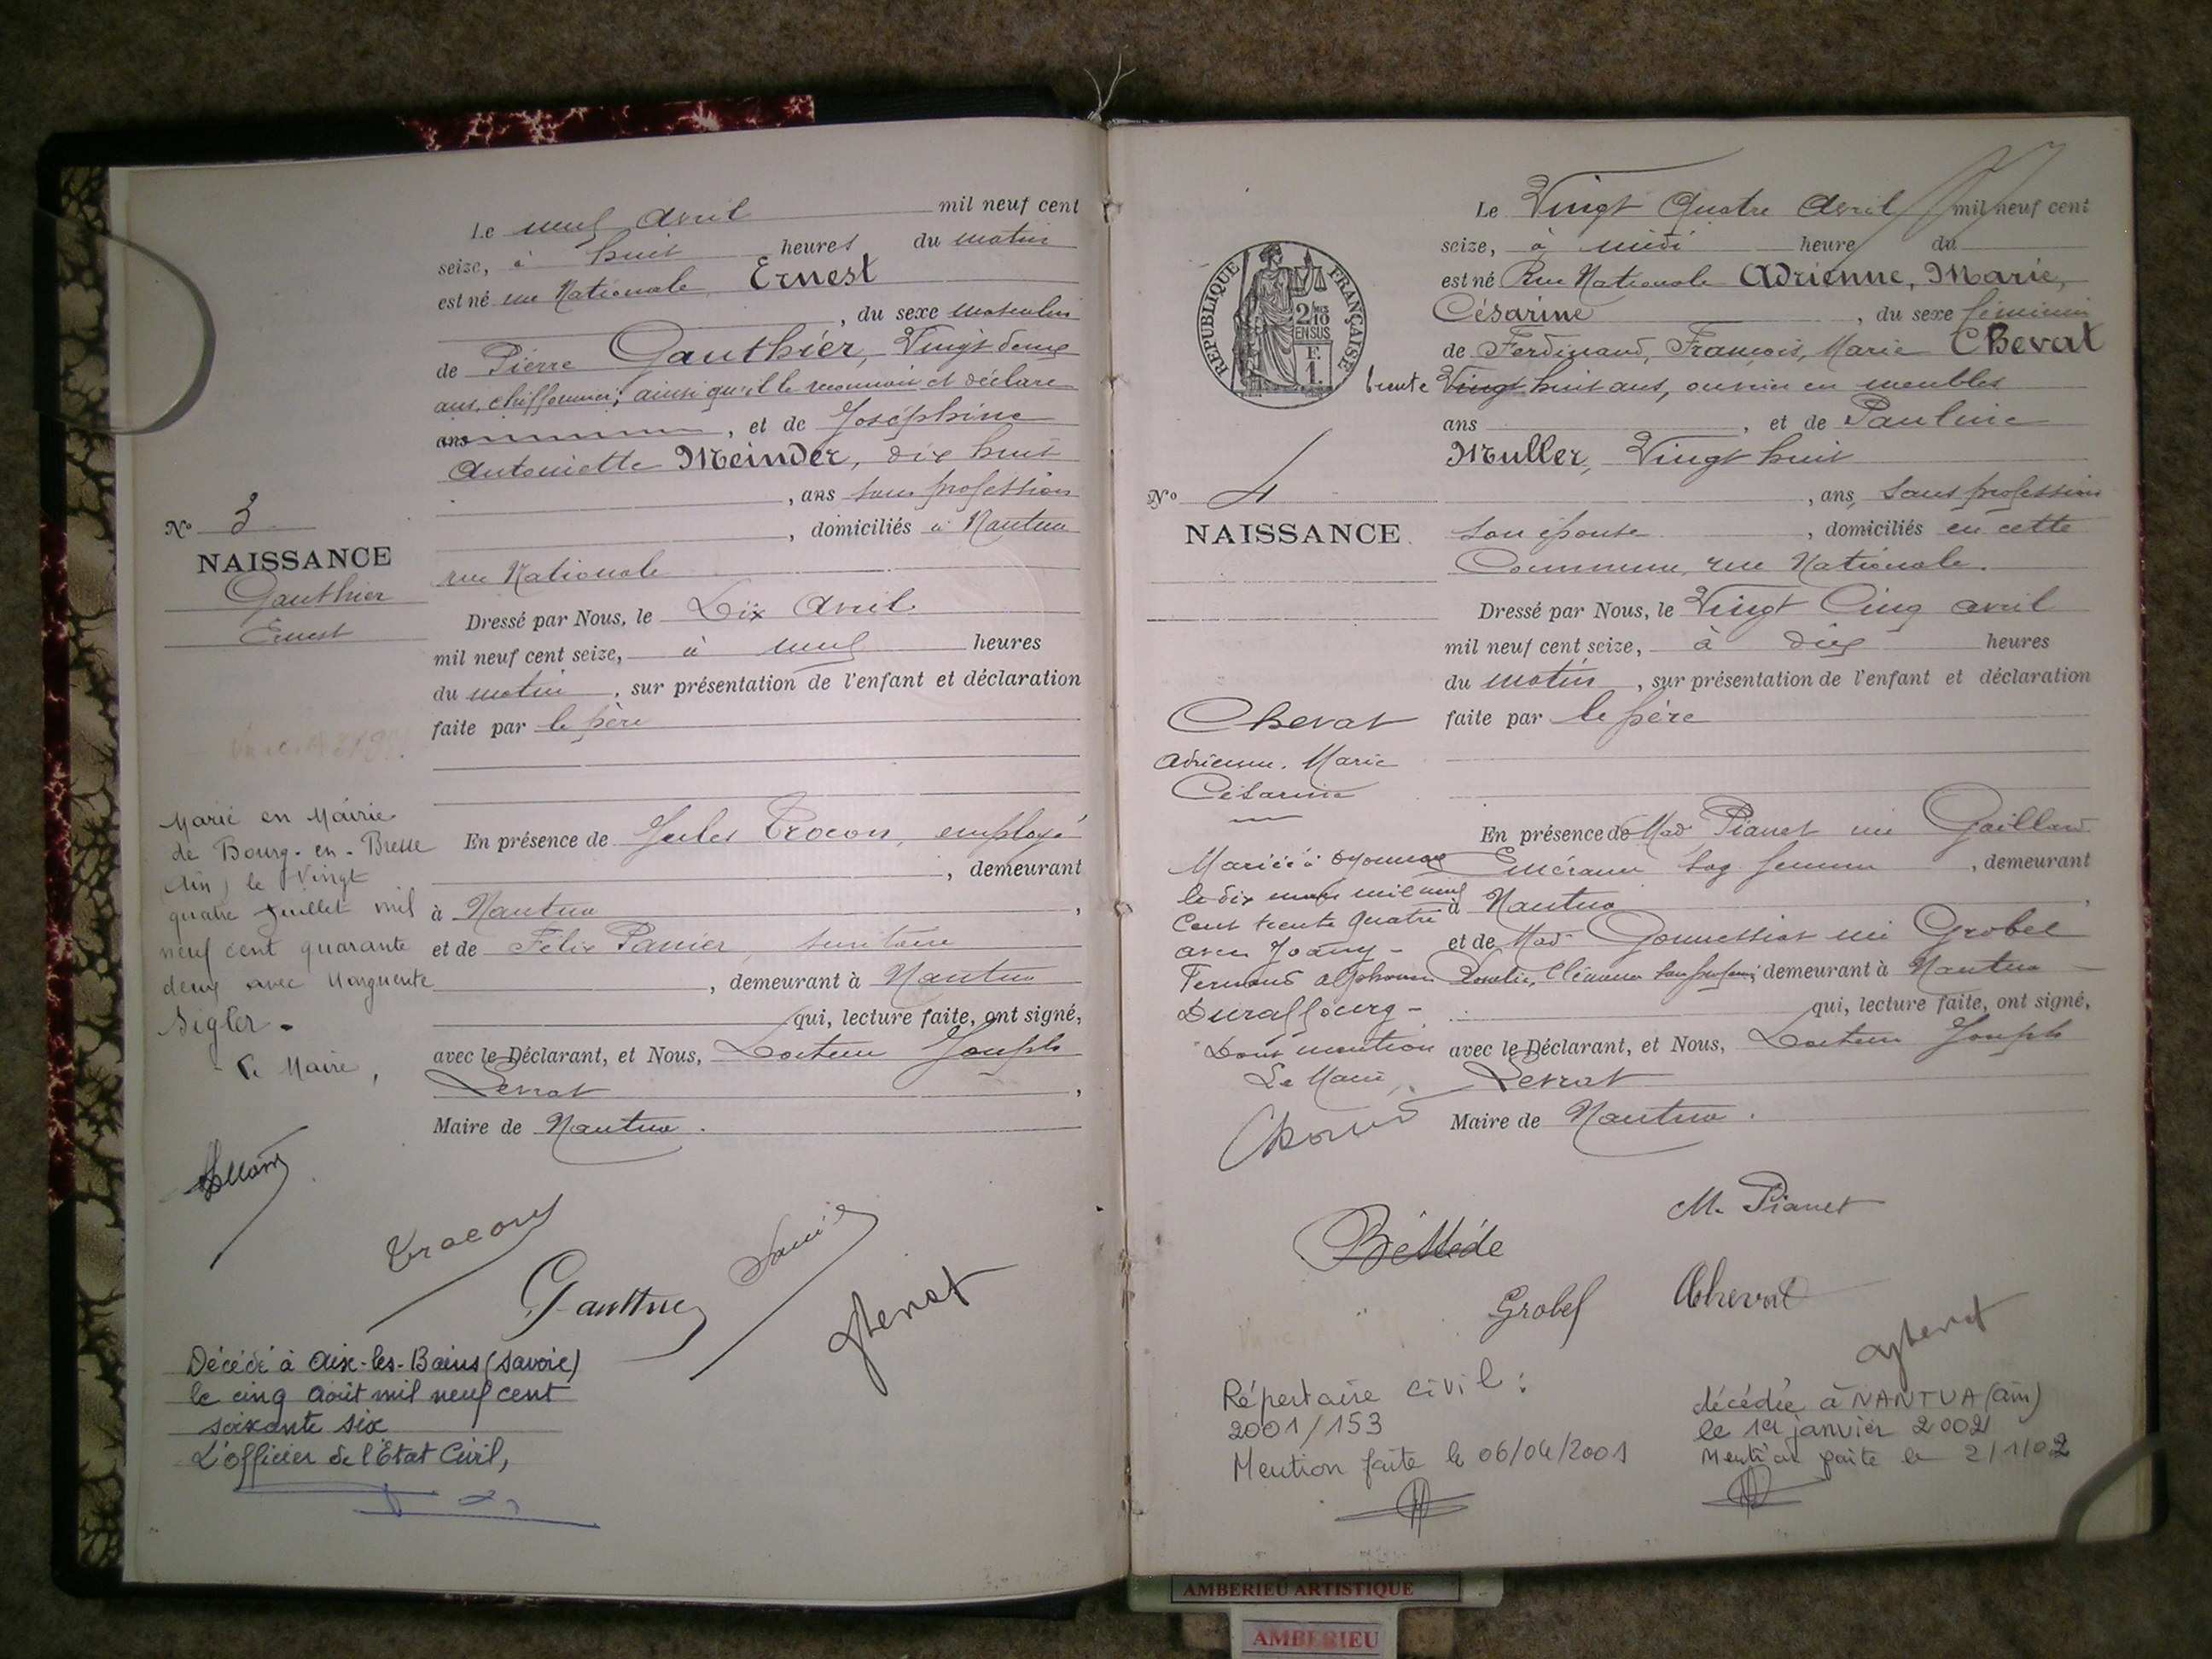 Le neuf avril mil neuf cent
seize, à huit heures du matin
est né rue Nationale Ernest
, du sexe masculin
de Pierre Gauthier, Vingt deux
ans, chiffonnier; ainsi qu'il le reconnait et déclare
ans , et de Joséphine
Antoinette Meinder, dix huit
, ans sans profession
, domiciliés à Nantua
rue Nationale
Dressé par Nous, le Dix Avril
mil neuf cent seize, à neuf heures
du matin , sur présentation de l'enfant et déclaration
faite par le père
En présence de Jules Trocon, employé
, demeurant
à Nantua ,
et de Félix Panier,
, demeurant à Nantua
qui, lecture faite, ont signé,
avec le Déclarant, et Nous, Docteur Joseph
Levrat ,
Maire de Nantua.
No 3
NAISSANCE
Gauthier
Ernest
Marié en Mairie
de Bourg-en-Bresse
(Ain) le Vingt
quatre Juillet mil
neuf cent quarante
deux avec Marguerite
Sigler.
Le Maire,
Trocon
Gauthier
Décédé à Aix-les-Bains (Savoie)
le cinq août mil neuf cent
soixante six
L'officier de l'Etat Civil,
Le Vingt Quatre Avril mil neuf cent
seize, à midi heure du
est né Rue Nationale Adrienne, Marie,
Césarine , du sexe féminin
de Ferdinand, François, Marie Chevat
trente Vingt huit ans, ouvrier en meubles
ans , et de Pauline
Muller, Vingt huit
, ans, sans profession
son épouse , domiciliés en cette
Commune, rue Nationale.
Dressé par Nous, le Vingt Cinq avril
mil neuf cent seize, à dix heures
du matin , sur présentation de l'enfant et déclaration
faite par le père
En présence de Mad Pianet née Gaillard
sag femme , demeurant
à Nantua ,
et de Mad Gonnessiat née Grobel
demeurant à Nantua
qui, lecture faite, ont signé,
avec le Déclarant, et Nous, Docteur Joseph
Levrat
Maire de Nantua.
REPUBLIQUE FRANÇAISE
2/10
EN SUS
F.
1.
No 4
NAISSANCE
Chevat
Adrienne, Marie
Césarine
Mariée à Oyonnax
le dix mars mil neuf
cent trente quatre
avec Joany
Fernand Alphonse
Duraffourg
Dont mention
Le Maire,
M. Pianet
Grobel
Chevat
Répertoire civil:
2001/153
Mention faite le 06/04/2001
décédée à NANTUA (Ain)
le 1er janvier 2002
Mention faite le 2/1/02
AMBERIEU ARTISTIQUE
AMBERIEU